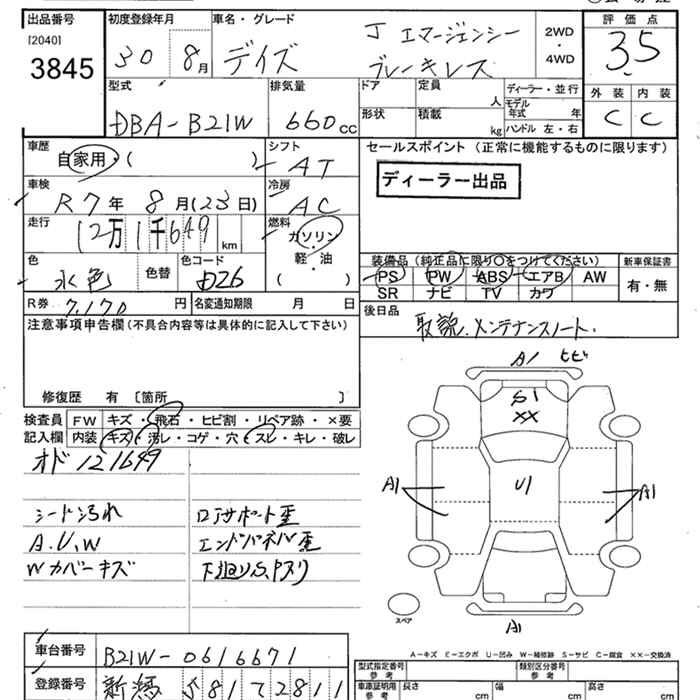 出品番号 初度登録年月 車名・グレード 評価点
[2040]
3845
30 8月 デイズ J エマージェンシー ブレーキレス
2WD・4WD
3.5
型式 排気量 ドア 定員 人 ディーラー・並行 外装 内装
DBA-B21W 660cc
形状 積載 kg モデル年式 年 ハンドル 左・右
C C
車歴 自家用・( ) シフト AT
セールスポイント (正常に機能するものに限ります)
ディーラー出品
車検 R7年 8月(23日) 冷房 AC
走行 12万1千649km 燃料 ガソリン・軽・油 ( )
色 水色 色替 色コード D26
装備品(純正品に限り○をつけてください) 新車保証書
PS PW ABS エアB AW
SR ナビ TV カワ
有・無
R券 7,170円 名変通知期限 月 日
後日品 取説、メンテナンスノート.
注意事項申告欄(不具合内容等は具体的に記入して下さい)
修復歴 有 [箇所 ]
検査員記入欄
FW キズ・飛石・ヒビ割・リペア跡・×要
内装 キズ・汚レ・コゲ・穴・スレ・キレ・破レ
オド 121649
シート汚れ ロアサポート歪
A.U.W エンドパネル歪
Wカバーキズ 下廻りS、Pヌリ
A1 ヒビ
S1
XX
A1 U1 A1
A1
スペア
A-キズ E-エクボ U-凹み W-補修跡 S-サビ C-腐食 XX-交換済
車台番号 B21W-0616671
型式指定番号 参考 類別区分番号 参考
登録番号 新潟 581 て 2811
車庫証明用 参考 長さ cm 幅 cm 高さ cm